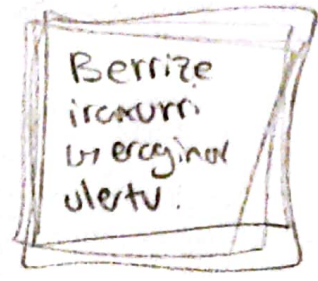 Berrize
irakurri
eragina
ulertu.